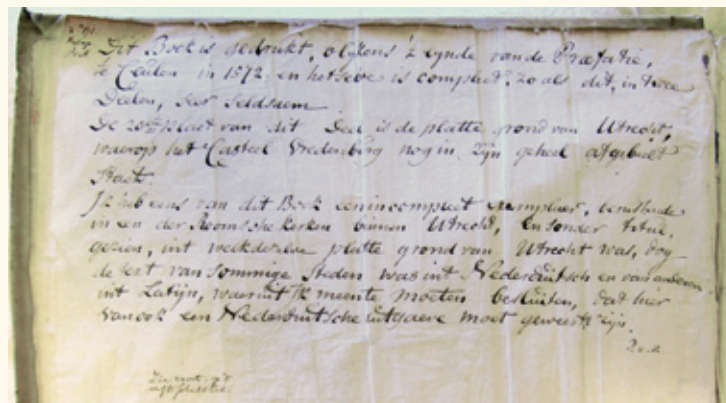 Dit Boek is gedrukt, olijkens 't eynde van de Præfatie,
te Ceulen in 1572. en hetselve is compleet, zo als dit, in twee
Deelen, seer seldsaem
De 20ste plaet van dit Deel is de platte grond van Utrecht,
waerop het Casteel Vredenburg nog in zijn geheel afgebeelt
staet.
Ik heb eens van dit Boek een incompleet exemplaer, berustende
in een der Roomsche kerken binnen Utrecht, en sonder titul,
gezien, int welk dezelve platte grond van Utrecht was, dog
de text van sommige steden was int Nederduitsch en van anderen
int Latijn, waeruit ik meente moeten besluiten, dat hier
van ook een Nederduitsche uitgaeve moet geweest zijn.